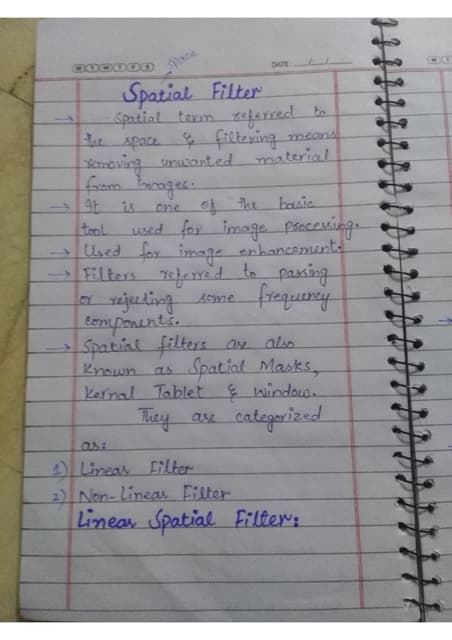 space
M T W T F S
DATE: __/__/__
Spatial Filter
→ Spatial term referred to
the space & filtering means
removing unwanted material
from images.
→ It is one of the basic
tool used for image processing.
→ Used for image enhancement.
→ Filters referred to passing
or rejecting some frequency
components.
→ Spatial filters are also
known as Spatial Masks,
Kernal Tablet & window.
They are categorized
as:
1) Linear Filter
2) Non-Linear Filter
Linear Spatial Filter: